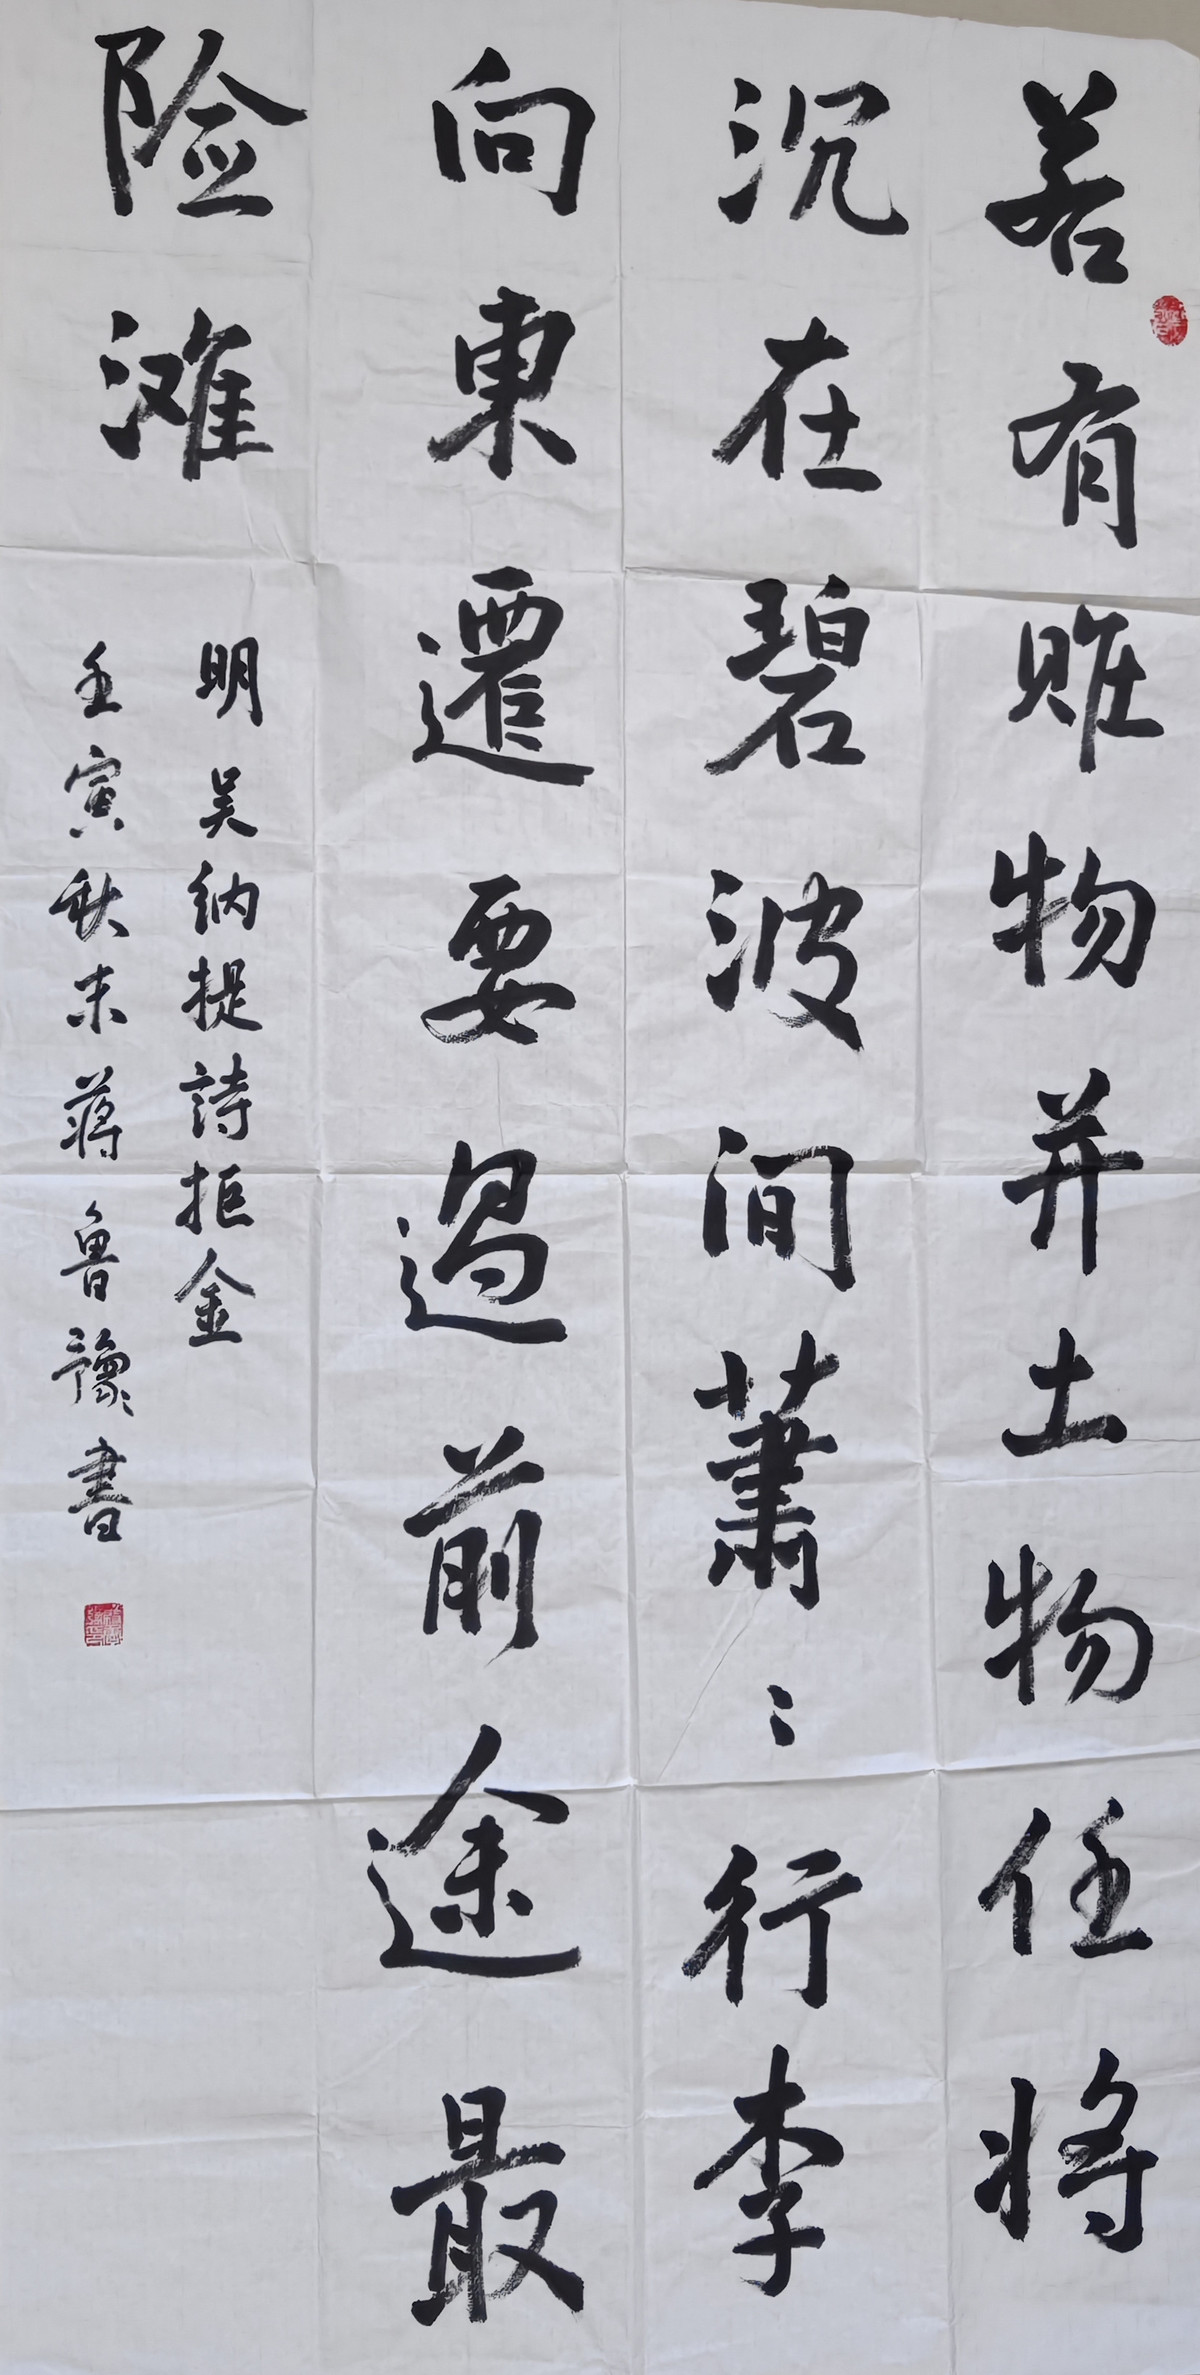 若有赃物并土物任将
沉在碧波间萧〻行李
向東遷要過前途最
险滩
明吴纳提詩拒金
壬寅秋末蒋鲁豫書